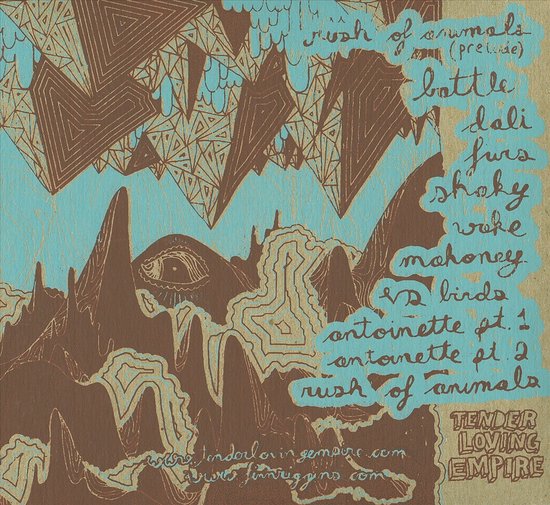 rush of animals
(prelude)
battle
dali
furs
shaky
wake
mahoney
vs birds
antoinette pt. 1
antoinette pt. 2
rush of animals
TENDER
LOVING
EMPIRE
www.tenderlovingempire.com
www.finnriggins.com